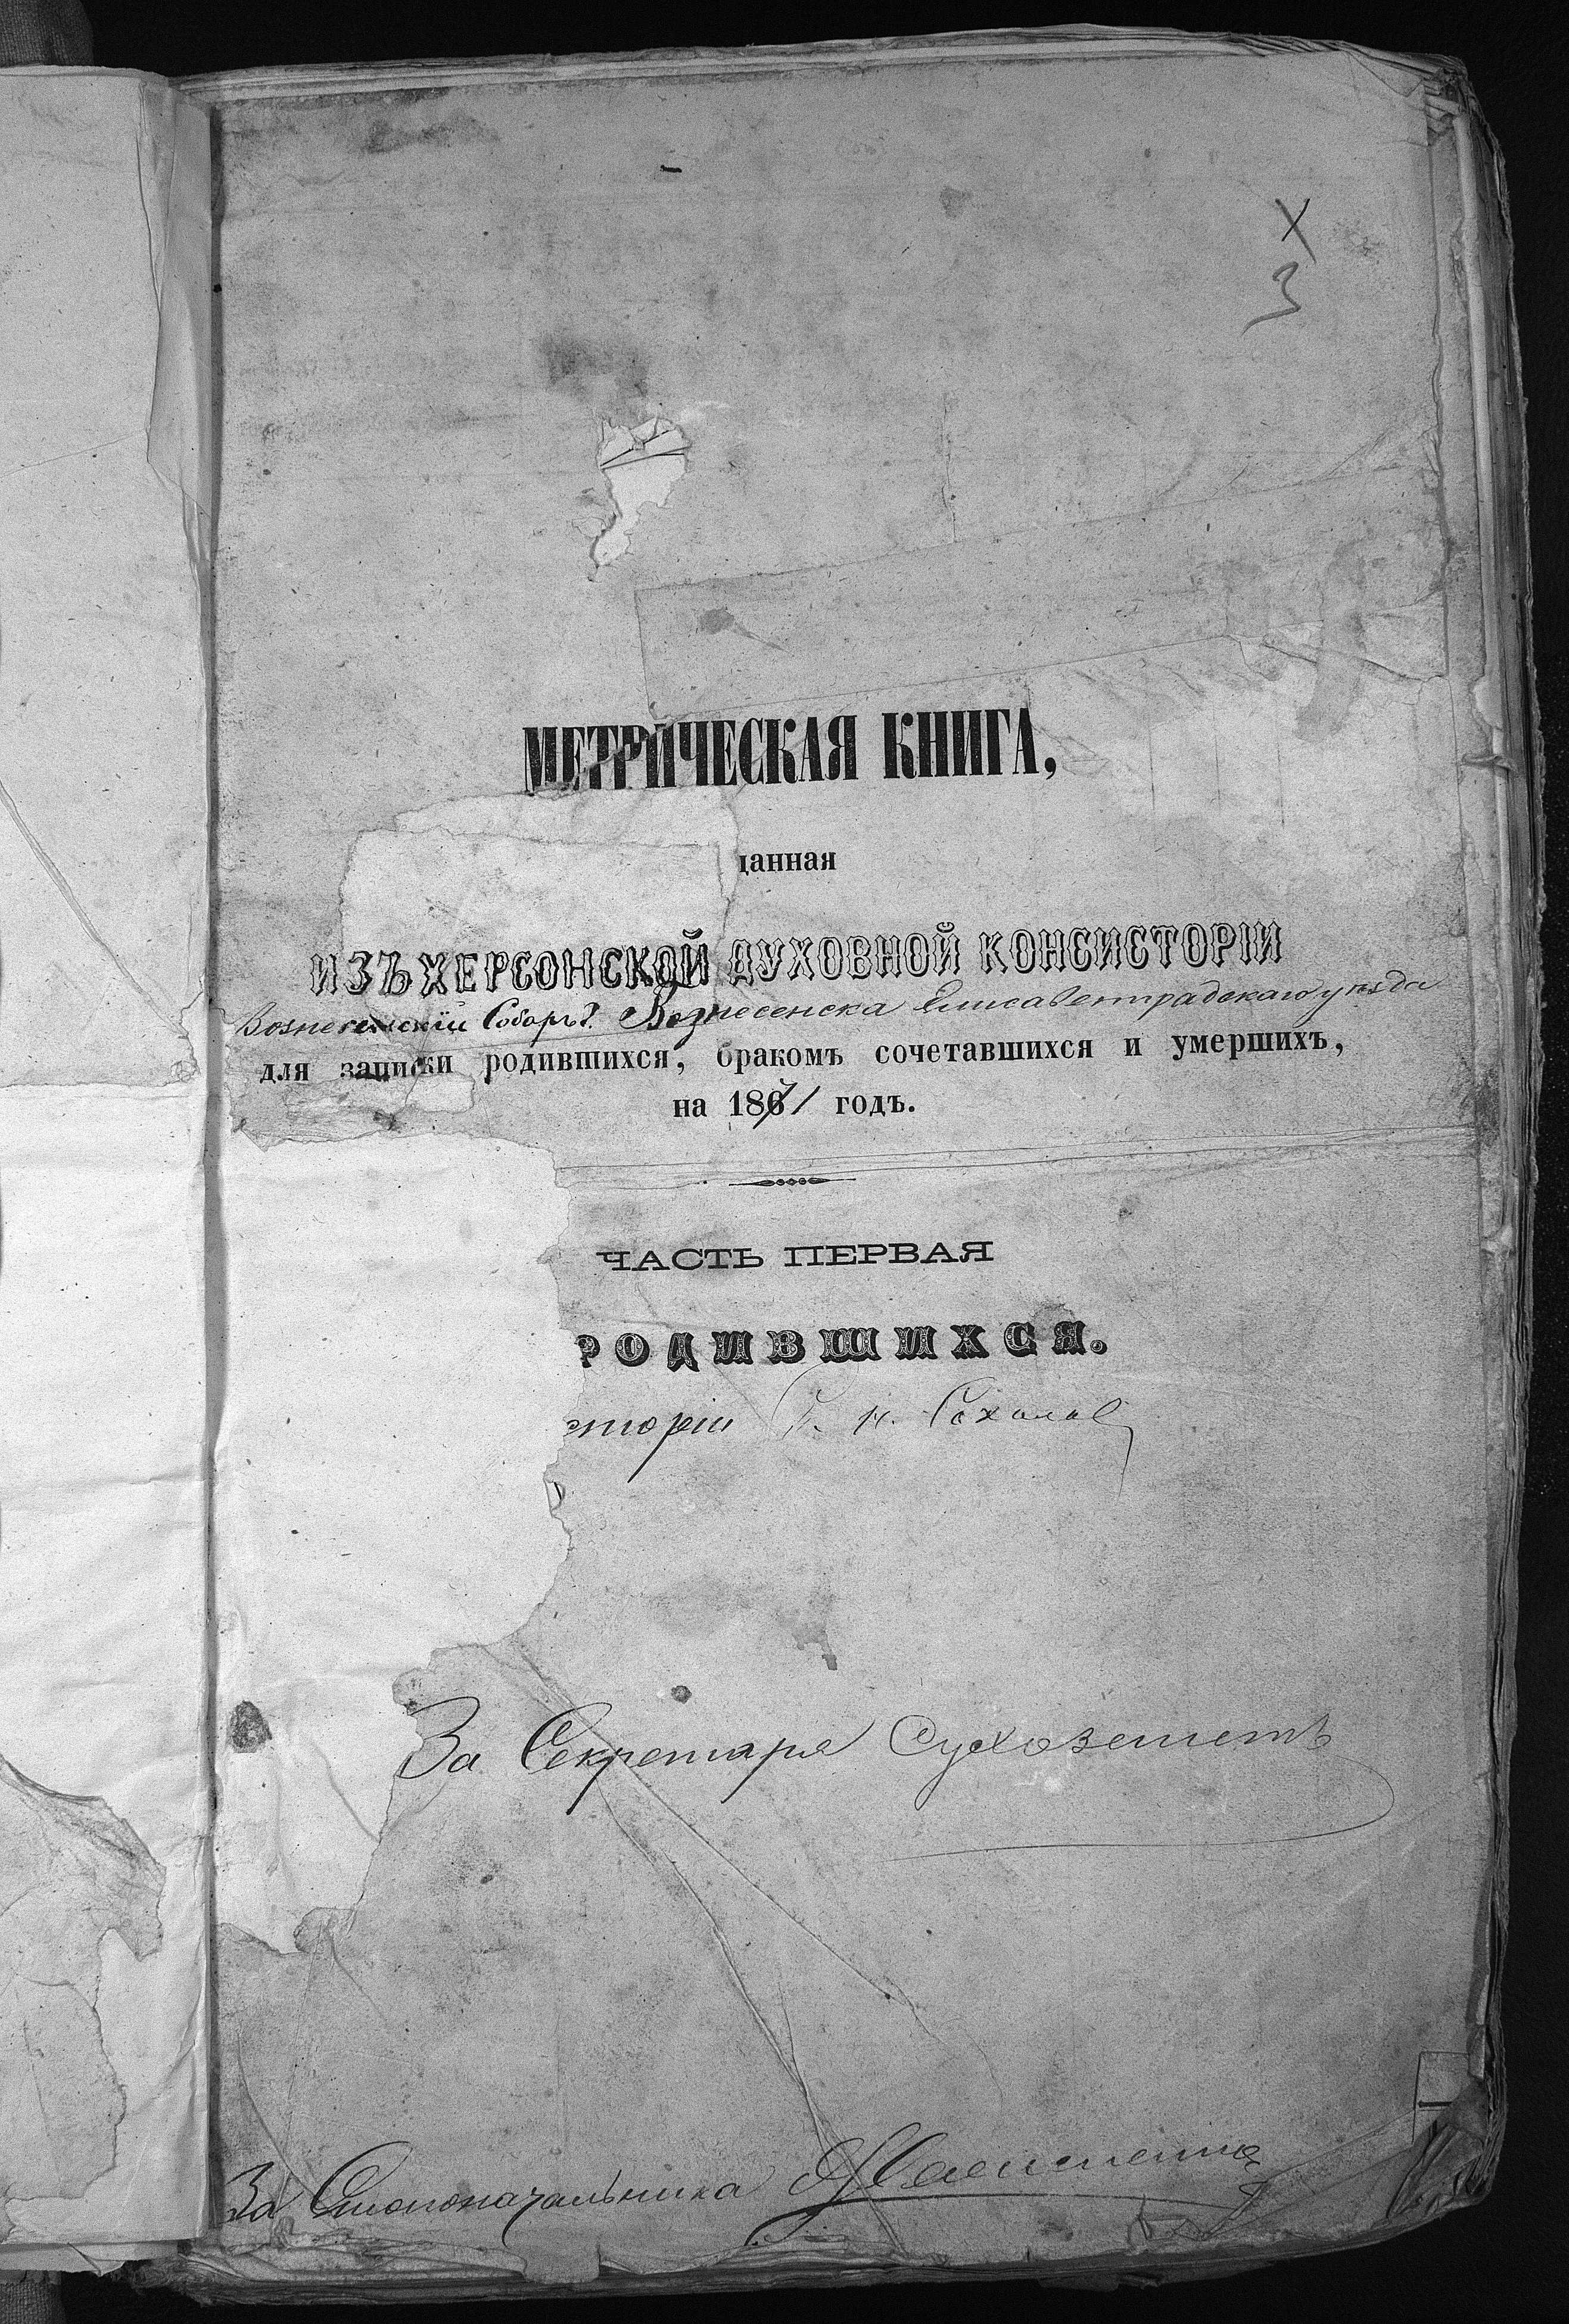 X
3
МЕТРИЧЕСКАЯ КНИГА,
данная
ИЗЪ ХЕРСОНСКОЙ ДУХОВНОЙ КОНСИСТОРІИ
Вознесенскій Соборъ г. Вознесенска Елисаветградскаго уѣзда
для записки родившихся, бракомъ сочетавшихся и умершихъ,
на 1871 годъ.
ЧАСТЬ ПЕРВАЯ
РОДИВШИХСЯ.
сторіи
За Секретаря
За Столоначальника